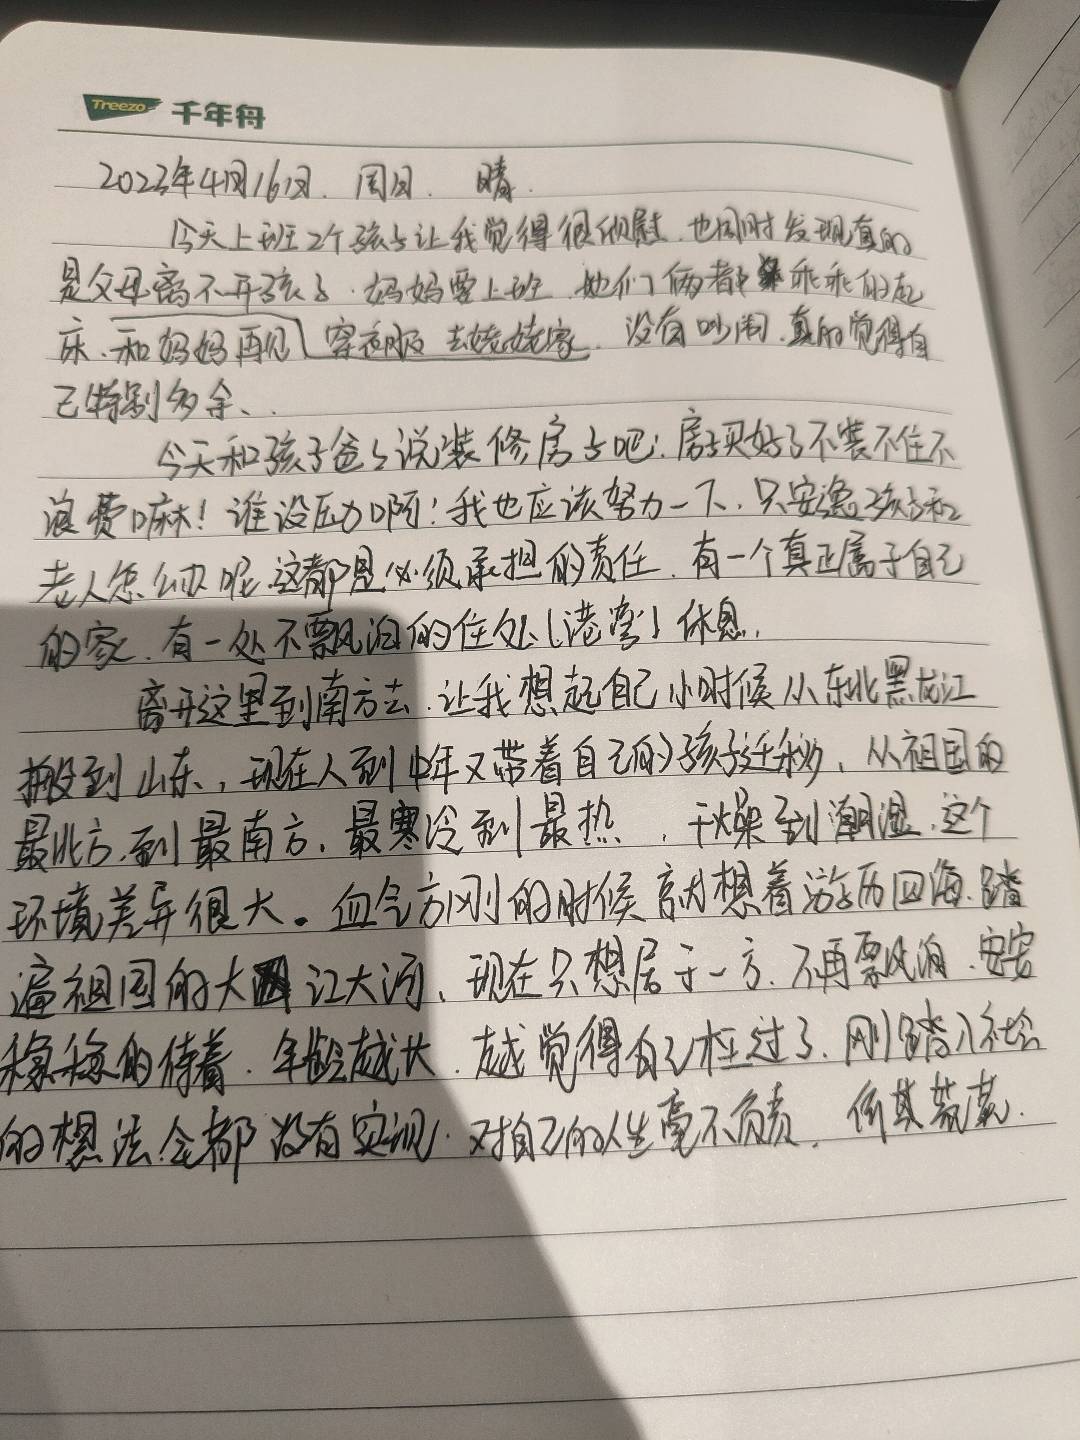 Treezo 千年舟
2023年4月16日. 周日. 晴.
今天上班2个孩子让我觉得很欣慰.也同时发现真的
是父母离不开孩子.妈妈要上班.她们俩都乖乖的起
床.和妈妈再见穿衣服去姥姥家.没有吵闹.真的觉得自
己特别多余、.
今天和孩子爸爸说装修房子吧:房子买好了不装不住不
浪费嘛!谁没压力啊!我也应该努力一下.只安逸孩子和
老人怎么办呢.这都是必须承担的责任.有一个真正属于自己
的家.有一处不飘泊的住处(港湾)休息.
离开这里到南方去.让我想起自己小时候从东北黑龙江
搬到山东.,现在人到中年又带着自己的孩子迁移.从祖国的
最北方.到最南方.最寒冷到最热,干燥到潮湿.这个
环境差异很大。血气方刚的时候就想着游历四海.踏
遍祖国的大江大河.现在只想居于一方.不再飘泊.安安
稳稳的待着.年龄越长.越觉得自己枉过了.刚踏入社会
的想法.全都没有实现.对自己的人生毫不负责.